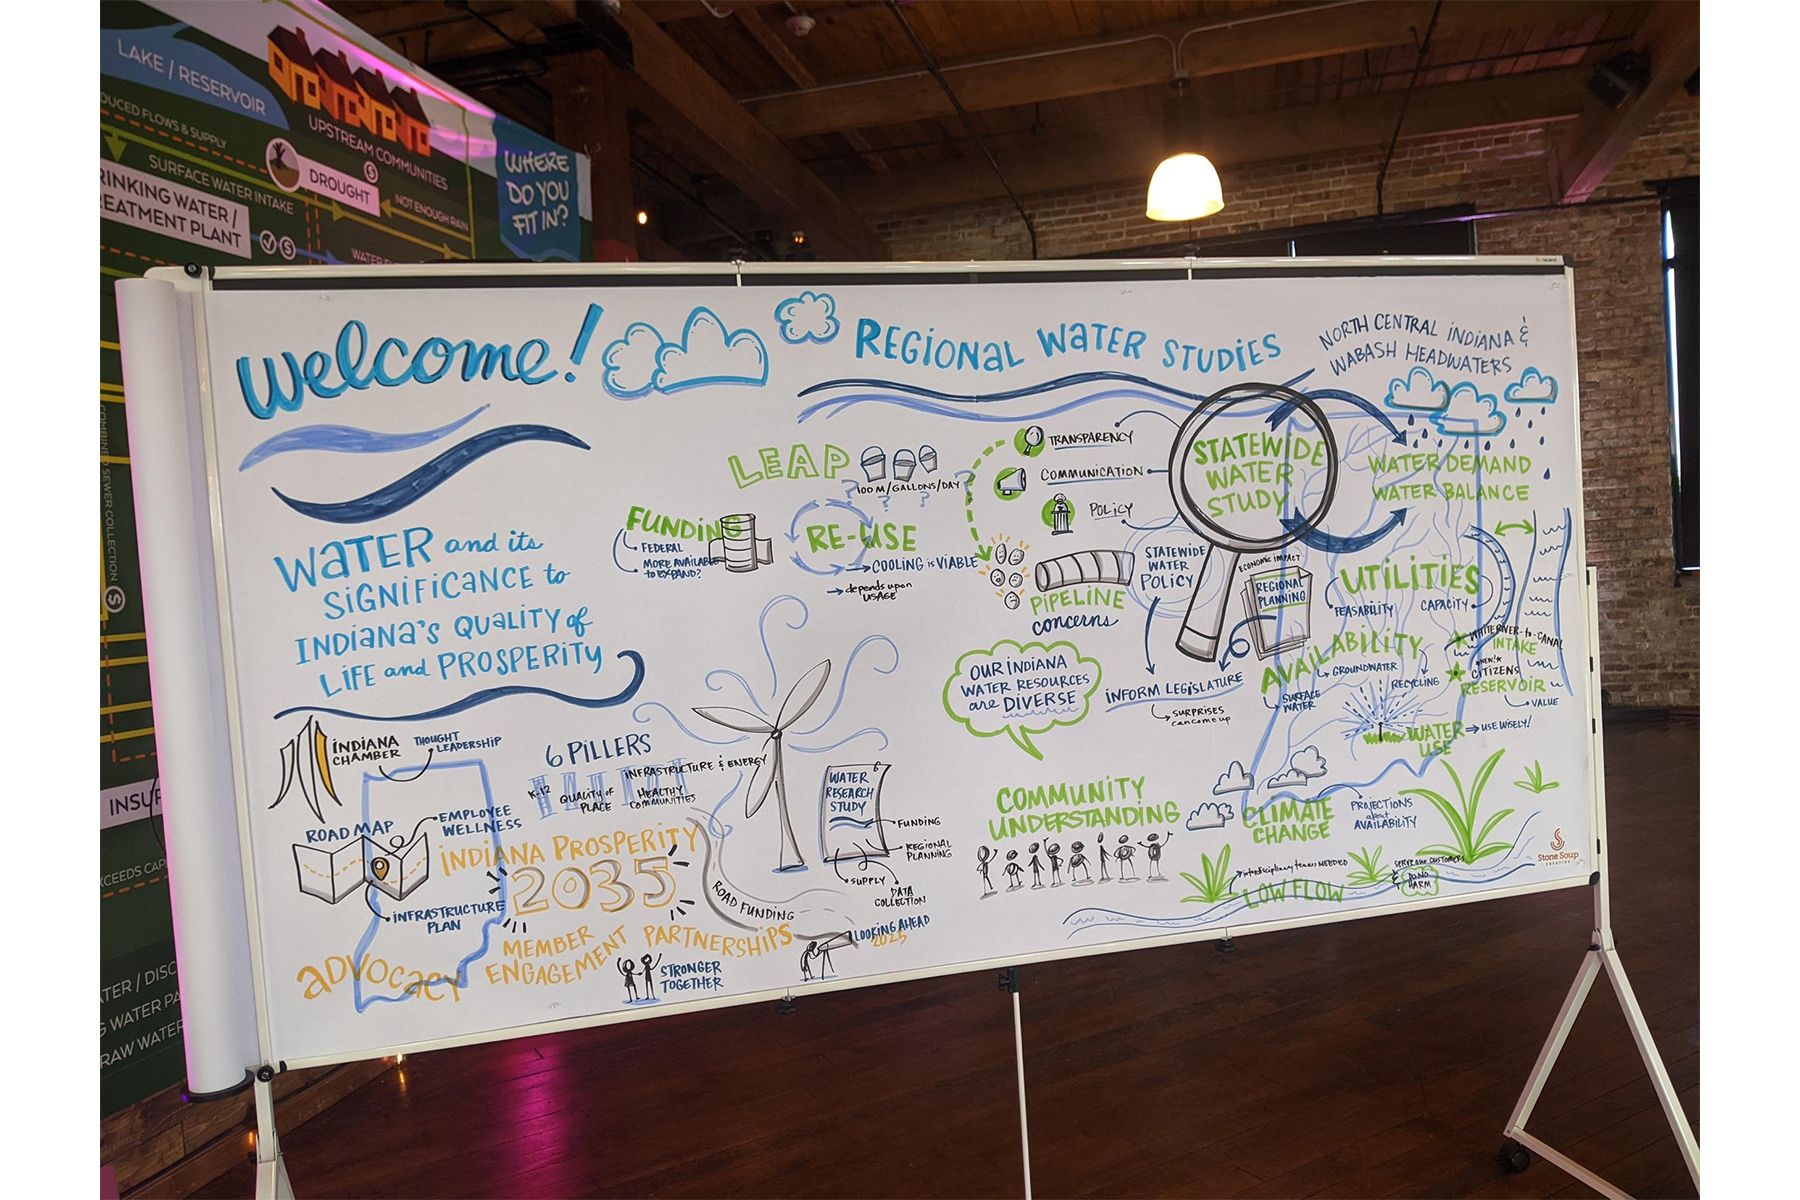 LAKE / RESERVOIR
UPSTREAM COMMUNITIES
DUCED FLOWS & SUPPLY
SURFACE WATER INTAKE
DROUGHT
NOT ENOUGH RAIN
RINKING WATER /
REATMENT PLANT
WATER
WHERE
DO YOU
FIT IN?
COMBINED SEWER COLLECTION
INSUF
XCEEDS CAP
ATER / DISC
G WATER PA
RAW WATER
Welcome!
WATER and its
SIGNIFICANCE to
INDIANA'S QUALITY of
LIFE and PROSPERITY
INDIANA
CHAMBER
THOUGHT
LEADERSHIP
ROAD MAP
EMPLOYEE
WELLNESS
INFRASTRUCTURE
PLAN
6 PILLERS
K-12
QUALITY OF
PLACE
INFRASTRUCTURE & ENERGY
HEALTHY
COMMUNITIES
INDIANA PROSPERITY
2035
ADVOCACY
MEMBER
ENGAGEMENT
PARTNERSHIPS
STRONGER
TOGETHER
ROAD FUNDING
WATER
RESEARCH
STUDY
FUNDING
REGIONAL
PLANNING
SUPPLY
DATA
COLLECTION
LOOKING AHEAD
2023
REGIONAL WATER STUDIES
LEAP
100 M/GALLONS/DAY
? ? ? ?
FUNDING
FEDERAL
MORE AVAILABLE
to EXPAND?
RE-USE
COOLING is VIABLE
depends upon
USAGE
TRANSPARENCY
COMMUNICATION
POLICY
PIPELINE
concerns
STATEWIDE
WATER
POLICY
STATEWIDE
WATER
STUDY
ECONOMIC IMPACT
REGIONAL
PLANNING
OUR INDIANA
WATER RESOURCES
are DIVERSE
INFORM LEGISLATURE
SURPRISES
can come up
COMMUNITY
UNDERSTANDING
NORTH CENTRAL INDIANA &
WABASH HEADWATERS
WATER DEMAND
WATER BALANCE
UTILITIES
FEASABILITY
CAPACITY
AVAILABILITY
GROUNDWATER
SURFACE
WATER
RECYCLING
WHITE RIVER-to-CANAL
INTAKE
*NEW!*
CITIZENS
RESERVOIR
VALUE
WATER
USE
USE WISELY!
CLIMATE
CHANGE
PROJECTIONS
about
AVAILABILITY
interdisciplinary teams NEEDED
LOW FLOW
SERVE our CUSTOMERS
&
DO NO
HARM
Stone Soup
CREATIVE